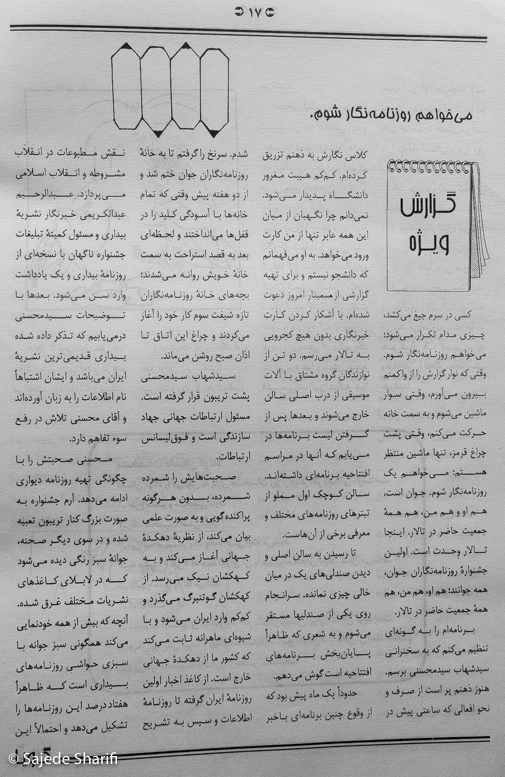 ۱۷
می‌خواهم روزنامه‌نگار شوم.
گزارش
ویژه
کسی در سرم جیغ می‌کشد،
چیزی مدام تکرار می‌شود:
می‌خواهم روزنامه‌نگار شوم.
وقتی که نوار گزارش را از واکمنم
بیرون می‌آورم، وقتی سوار
ماشین می‌شوم و به سمت خانه
حرکت می‌کنم، وقتی پشت
چراغ قرمز، تنها ماشین منتظر
هستم: می‌خواهم یک
روزنامه‌نگار شوم. جوان است،
هم او و هم من، هم همهٔ
جمعیت حاضر در تالار. اینجا
تالار وحدت است. اولین
جشنوارهٔ روزنامه‌نگاران جوان،
همه جوانند؛ هم او، هم من، هم
همهٔ جمعیت حاضر در تالار.
برنامه‌ام را به گونه‌ای
تنظیم می‌کنم که به سخنرانی
سیدشهاب سیدمحسنی برسم.
هنوز ذهنم پر است از صرف و
نحو افعالی که ساعتی پیش در
کلاس نگارش به ذهنم تزریق
کرده‌ام. کم‌کم هیبت مغرور
دانشگاه پدیدار می‌شود.
نمی‌دانم چرا نگهبان از میان
این همه عابر تنها از من کارت
ورود می‌خواهد. به او می‌فهمانم
که دانشجو نیستم و برای تهیه
گزارشی از سمینار امروز دعوت
شده‌ام. با آشکار کردن کارت
خبرنگاری بدون هیچ کجرویی
به تالار می‌رسم. دو تن از
نوازندگان گروه مشتاق با آلات
موسیقی از درب اصلی سالن
خارج می‌شوند و بعدها پس از
گرفتن لیست برنامه‌ها در
می‌یابم که آنها در مراسم
افتتاحیه برنامه‌ای داشته‌اند.
سالن کوچک اول مملو از
تیترهای روزنامه‌های مختلف و
معرفی برخی از آن‌هاست.
تا رسیدن به سالن اصلی و
دیدن صندلی‌های یک در میان
خالی چیزی نمانده. سرانجام
روی یکی از صندلیها مستقر
می‌شوم و به شعری که ظاهراً
پایان‌بخش برنامه‌های
افتتاحیه است گوش می‌دهم.
حدوداً یک ماه پیش بود که
از وقوع چنین برنامه‌ای باخبر
شدم. سرنخ را گرفتم تا به خانهٔ
روزنامه‌نگاران جوان ختم شد و
از دو هفته پیش وقتی که تمام
خانه‌ها با آسودگی کلید را در
قفل‌ها می‌انداختند و لحظه‌ای
بعد به قصد استراحت به سمت
خانهٔ خویش روانه می‌شدند؛
بچه‌های خانهٔ روزنامه‌نگاران
تازه شیفت سوم کار خود را آغاز
می‌کردند و چراغ این اتاق تا
اذان صبح روشن می‌ماند.
سیدشهاب سیدمحسنی
پشت تریبون قرار گرفته است.
مسئول ارتباطات جهانی جهاد
سازندگی است و فوق‌لیسانس
ارتباطات.
صحبت‌هایش را شمرده
شمرده، بدون هرگونه
پراکنده‌گویی و به صورت علمی
بیان می‌کند، از نظریهٔ دهکدهٔ
جهانی آغاز می‌کند و به
کهکشان نیک می‌رسد. از
کهکشان گوتنبرگ می‌گذرد و
کم‌کم وارد ایران می‌شود و با
شیوه‌ای ماهرانه ثابت می‌کند
که کشور ما از دهکدهٔ جهانی
خارج است. از کاغذ اخبار اولین
روزنامهٔ ایران گرفته تا روزنامهٔ
اطلاعات و سپس به تشریح
نقش مطبوعات در انقلاب
مشروطه و انقلاب اسلامی
می‌پردازد. عبدالرحیم
عبدالکریمی خبرنگار نشریهٔ
بیداری و مسئول کمیتهٔ تبلیغات
جشنواره ناگهان با نسخه‌ای از
روزنامهٔ بیداری و یک یادداشت
وارد سن می‌شود. بعدها با
توضیحات سیدمحسنی
درمی‌یابیم که تذکر داده شده
بیداری قدیمی‌ترین نشریهٔ
ایران می‌باشد و ایشان اشتباهاً
نام اطلاعات را به زبان آورده‌اند
و آقای محسنی تلاش در رفع
سوء تفاهم دارد.
محسنی صحبتش را با
چگونگی تهیه روزنامه دیواری
ادامه می‌دهد. آرم جشنواره به
صورت بزرگ کنار تریبون تعبیه
شده و در سوی دیگر صحنه،
جوانهٔ سبز رنگی دیده می‌شود
که در لابلای کاغذهای
نشریات مختلف غرق شده.
آنچه که بیش از همه خودنمایی
می‌کند همگونی سبز جوانه با
سبزی حواشی روزنامه‌های
بیداری است که ظاهراً
هفتاد درصد این روزنامه‌ها را
تشکیل می‌دهد و احتمالاً این
© Sajede Sharifi